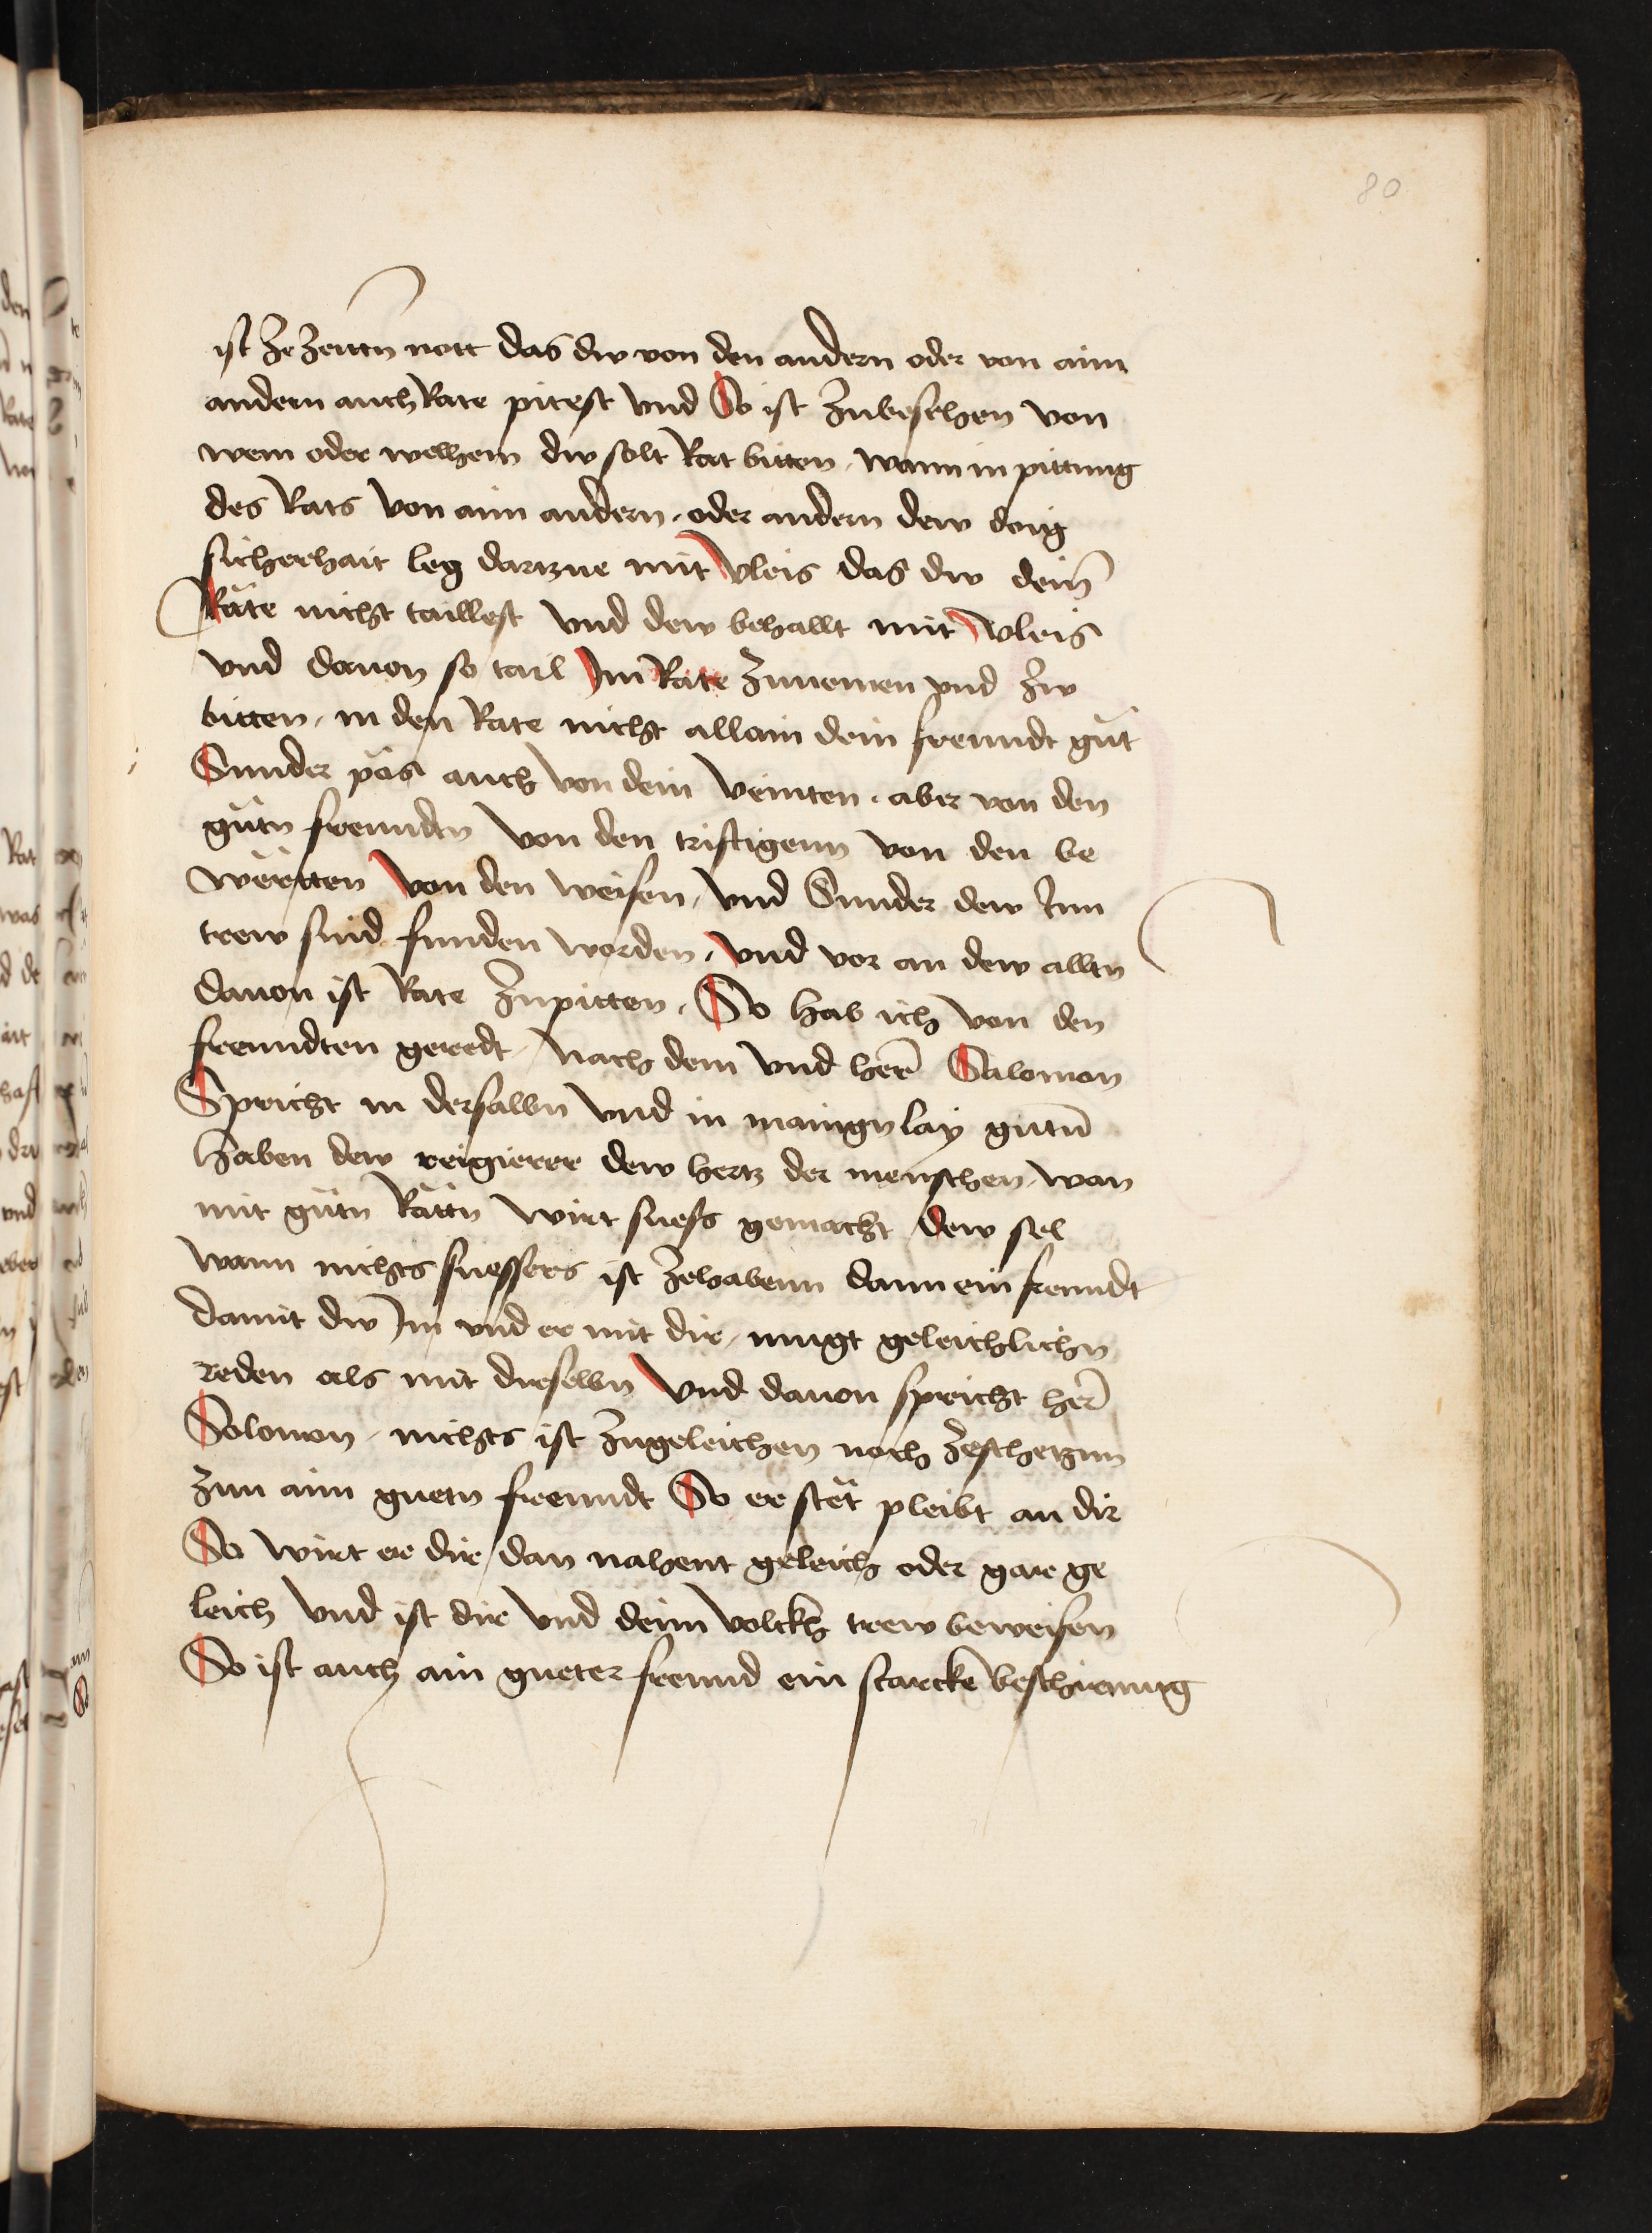 80
ist ze zeittn nott das dw von den andern oder von aim
andern auch Rate pitest vnd So ist zubesehen von
wem oder welhem dw solt Rat bitten, wann in pittung
des Rats von aim andern, oder andern dew doig
sicherhait leg dartzue mit vleis das dw dein̄
Räte nicht taillest vnd dew behallt mit vleis
vnd dauon so tail Im Räte zunemen vnd zw
bitten, in den Rate nicht allain dein freundt güt
Sunder pas auch von dein veinten, aber von den
gütn freundtn von den triftigenn von den be
wërtten von den weisen, vnd Sunder dew Inn
trew sind funden worden, vnd vor an dew alltn
dauon ist Rate zupitten, So hab ich von den
freundten geredt, nach dem vnd her̄ Salomon
Spricht in derselbn vnd in mainger lay gutn̄
haben dew reigierer dew hertz der menschen, wan
mit gütn Rättn wirt suess gemacht dew sel
wann nichts suessers ist zehabenn dann ein freundt
damit dw Im vnd er mit dir, mugt geleichlichn
reden als mit dirselbn vnd dauon spricht her̄
Solomon, nichts ist zugeleichen noch zeschetznn
zuu aim guetn freundt So er stët pleibt an dir
So wirt er dir dan nahent geleich oder gare ge
leich vnd ist dir vnd deim volckh trew beweisen
So ist auch ain gueter freund ein starcke beschirmung